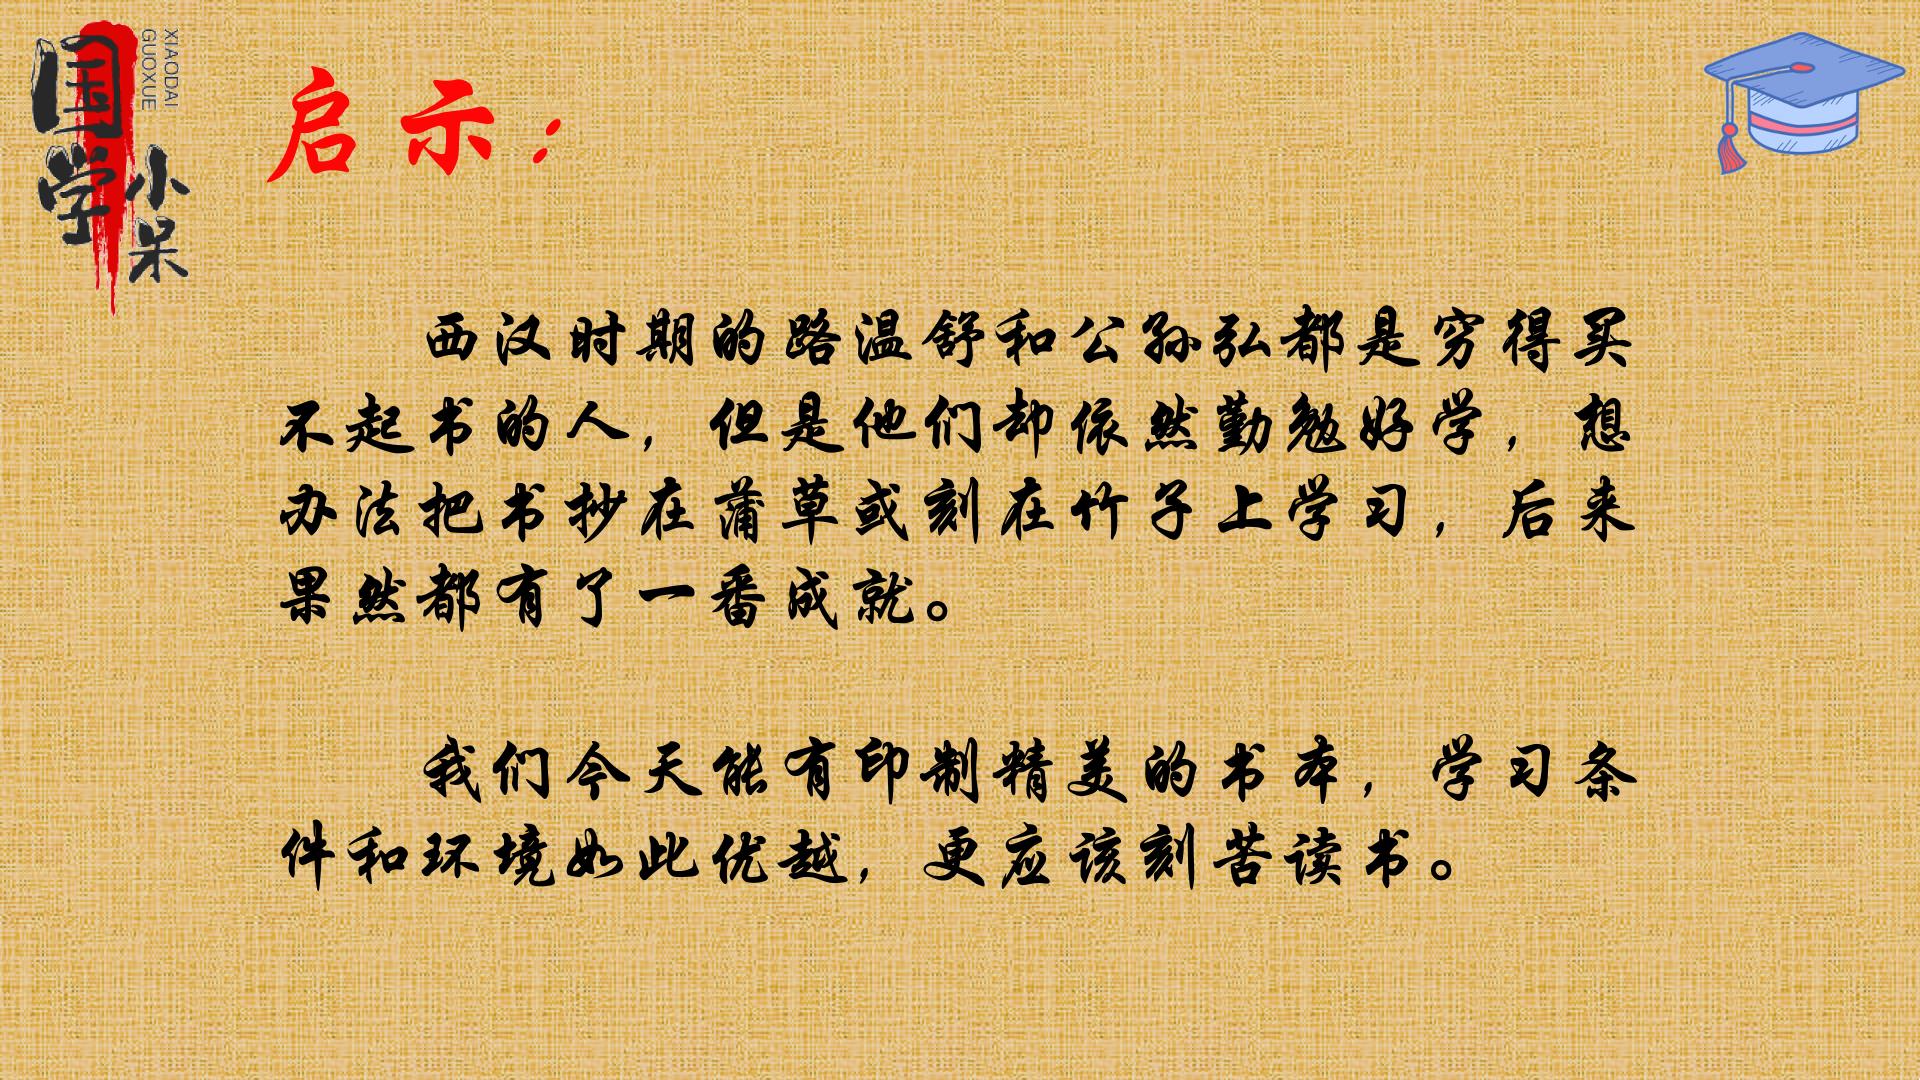 国学
小呆
XIAODAI
GUOXUE
启示：
西汉时期的路温舒和公孙弘都是穷得买
不起书的人，但是他们却依然勤勉好学，想
办法把书抄在蒲草或刻在竹子上学习，后来
果然都有了一番成就。
我们今天能有印制精美的书本，学习条
件和环境如此优越，更应该刻苦读书。